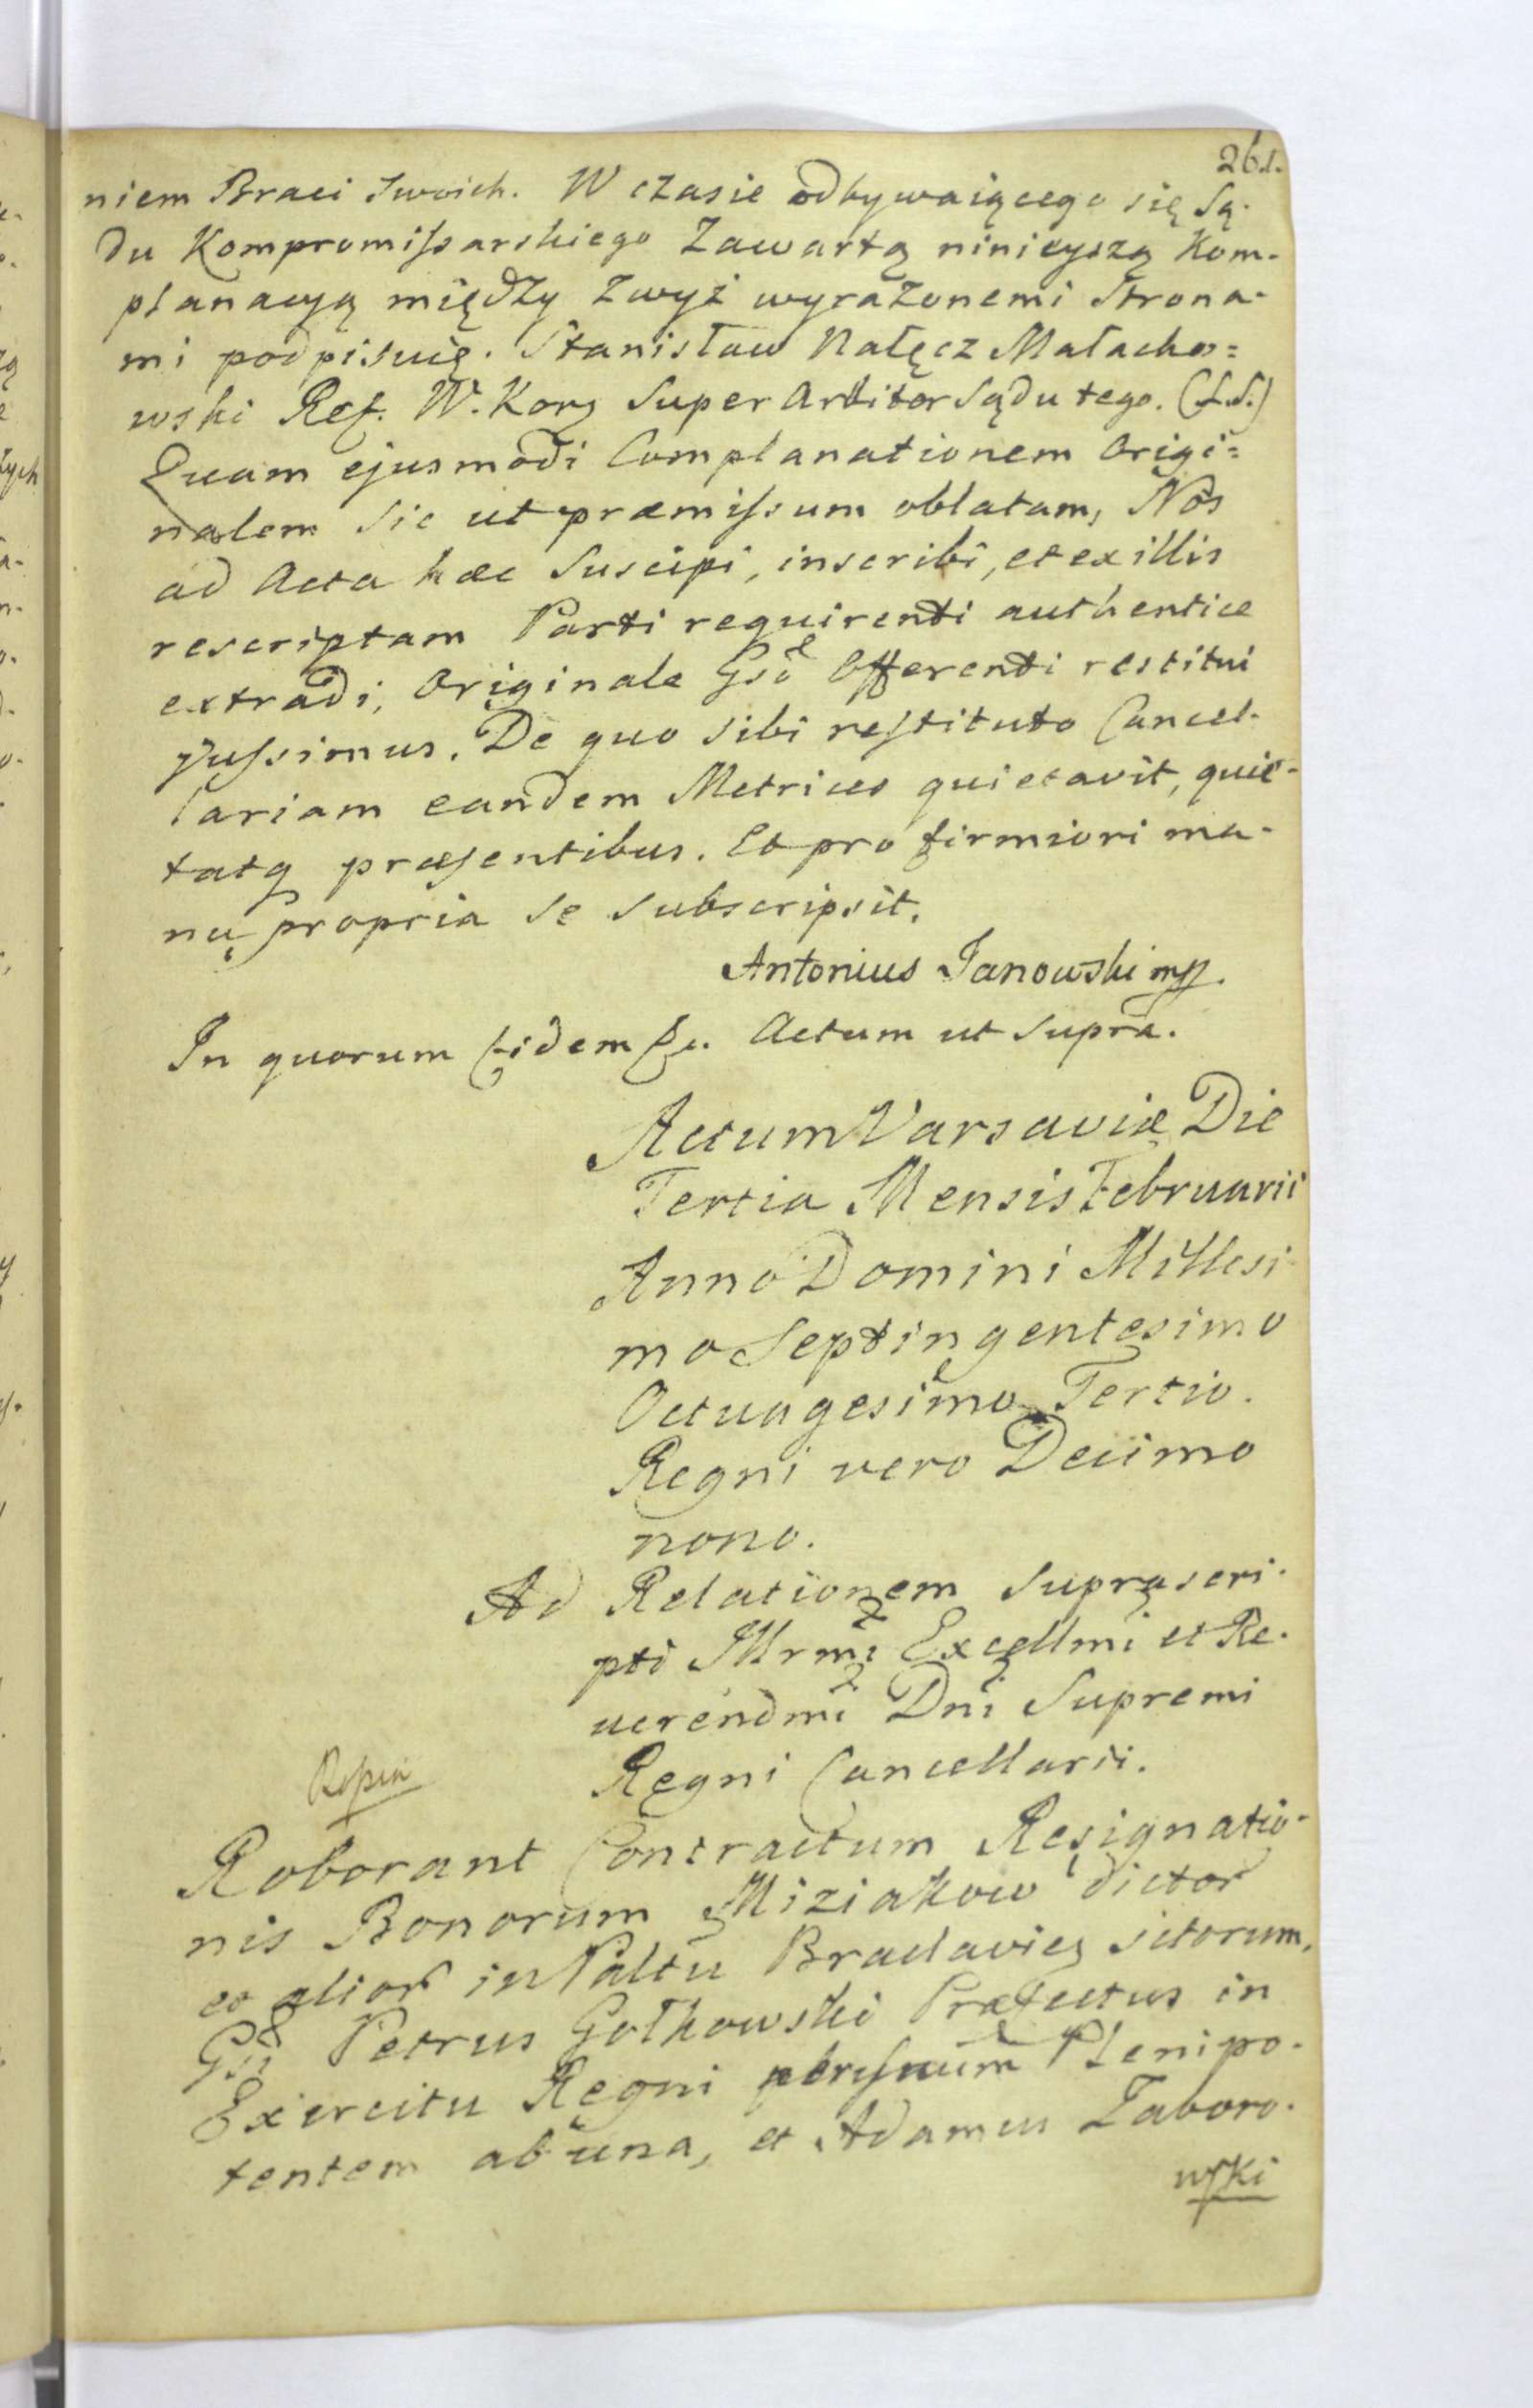 261.
niem Braci Swoich. W czasie odbywaiącego się Są-
du Kompromissarskiego Zawartą ninieyszą Kom-
planacyą między Zwyż wyrażonemi Strona-
mi podpisuię. Stanisław Nałęcz Małacho=
wski Ref. W. Kor Super Arbitor Sądu tego. (L.S.)
Quam ejusmodi Complanationem Origi=
nalem Sic ut præmissum oblatam, Nos
ad Acta hæc Suscipi, inscribi, et ex illis
rescriptam Parti requirenti authentice
extradi, Originale Gso Offerenti restitui
jussimus. De quo Sibi restituto Cancel-
lariam eandem Metrices quietavit, quie-
tatq præsentibus. Et pro firmiori ma-
nu propria Se Subscripsit.
Antonius Janowski mp.
In quorum fidem &c. Actum ut Supra.
Actum Varsaviæ Die
Tertia Mensis Februarii
Anno Domini Millesi-
mo Septingentesimo
Octuagesimo Tertio.
Regni vero Decimo
nono.
Ad Relationem Suprascri-
pti Illrmi Excellmi et Re-
verendmi Dni Supremi
Regni Cancellarii.
Roborant Contractum Resignatio-
nis Bonorum Miziakow dictor
et alior in Paltu Braclavien sitorum,
Gsi Petrus Golkowski Præfectus in
Exercitu Regni Plenipo-
tentem ab una, et Adamus Zaboro-
wski